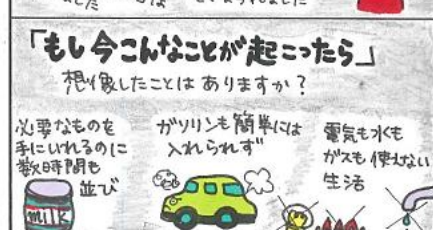 「もし今こんなことが起こったら」
想像したことはありますか?
必要なものを
手にいれるのに
数時間も
並び
milk
ガソリンも簡単には
入れられず
電気も水も
ガスも使えない
生活